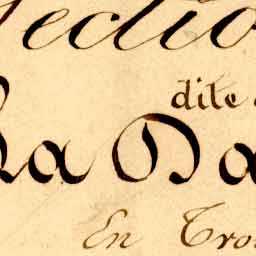 Sectio
dite
La Da
En Tro